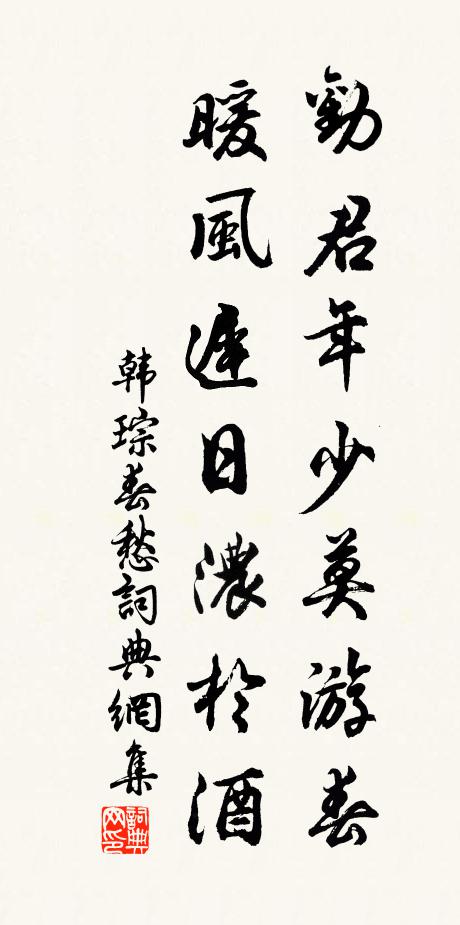 勸君年少莫游春
暖風遲日濃於酒
韩琮春愁詞典網集
詞典网印